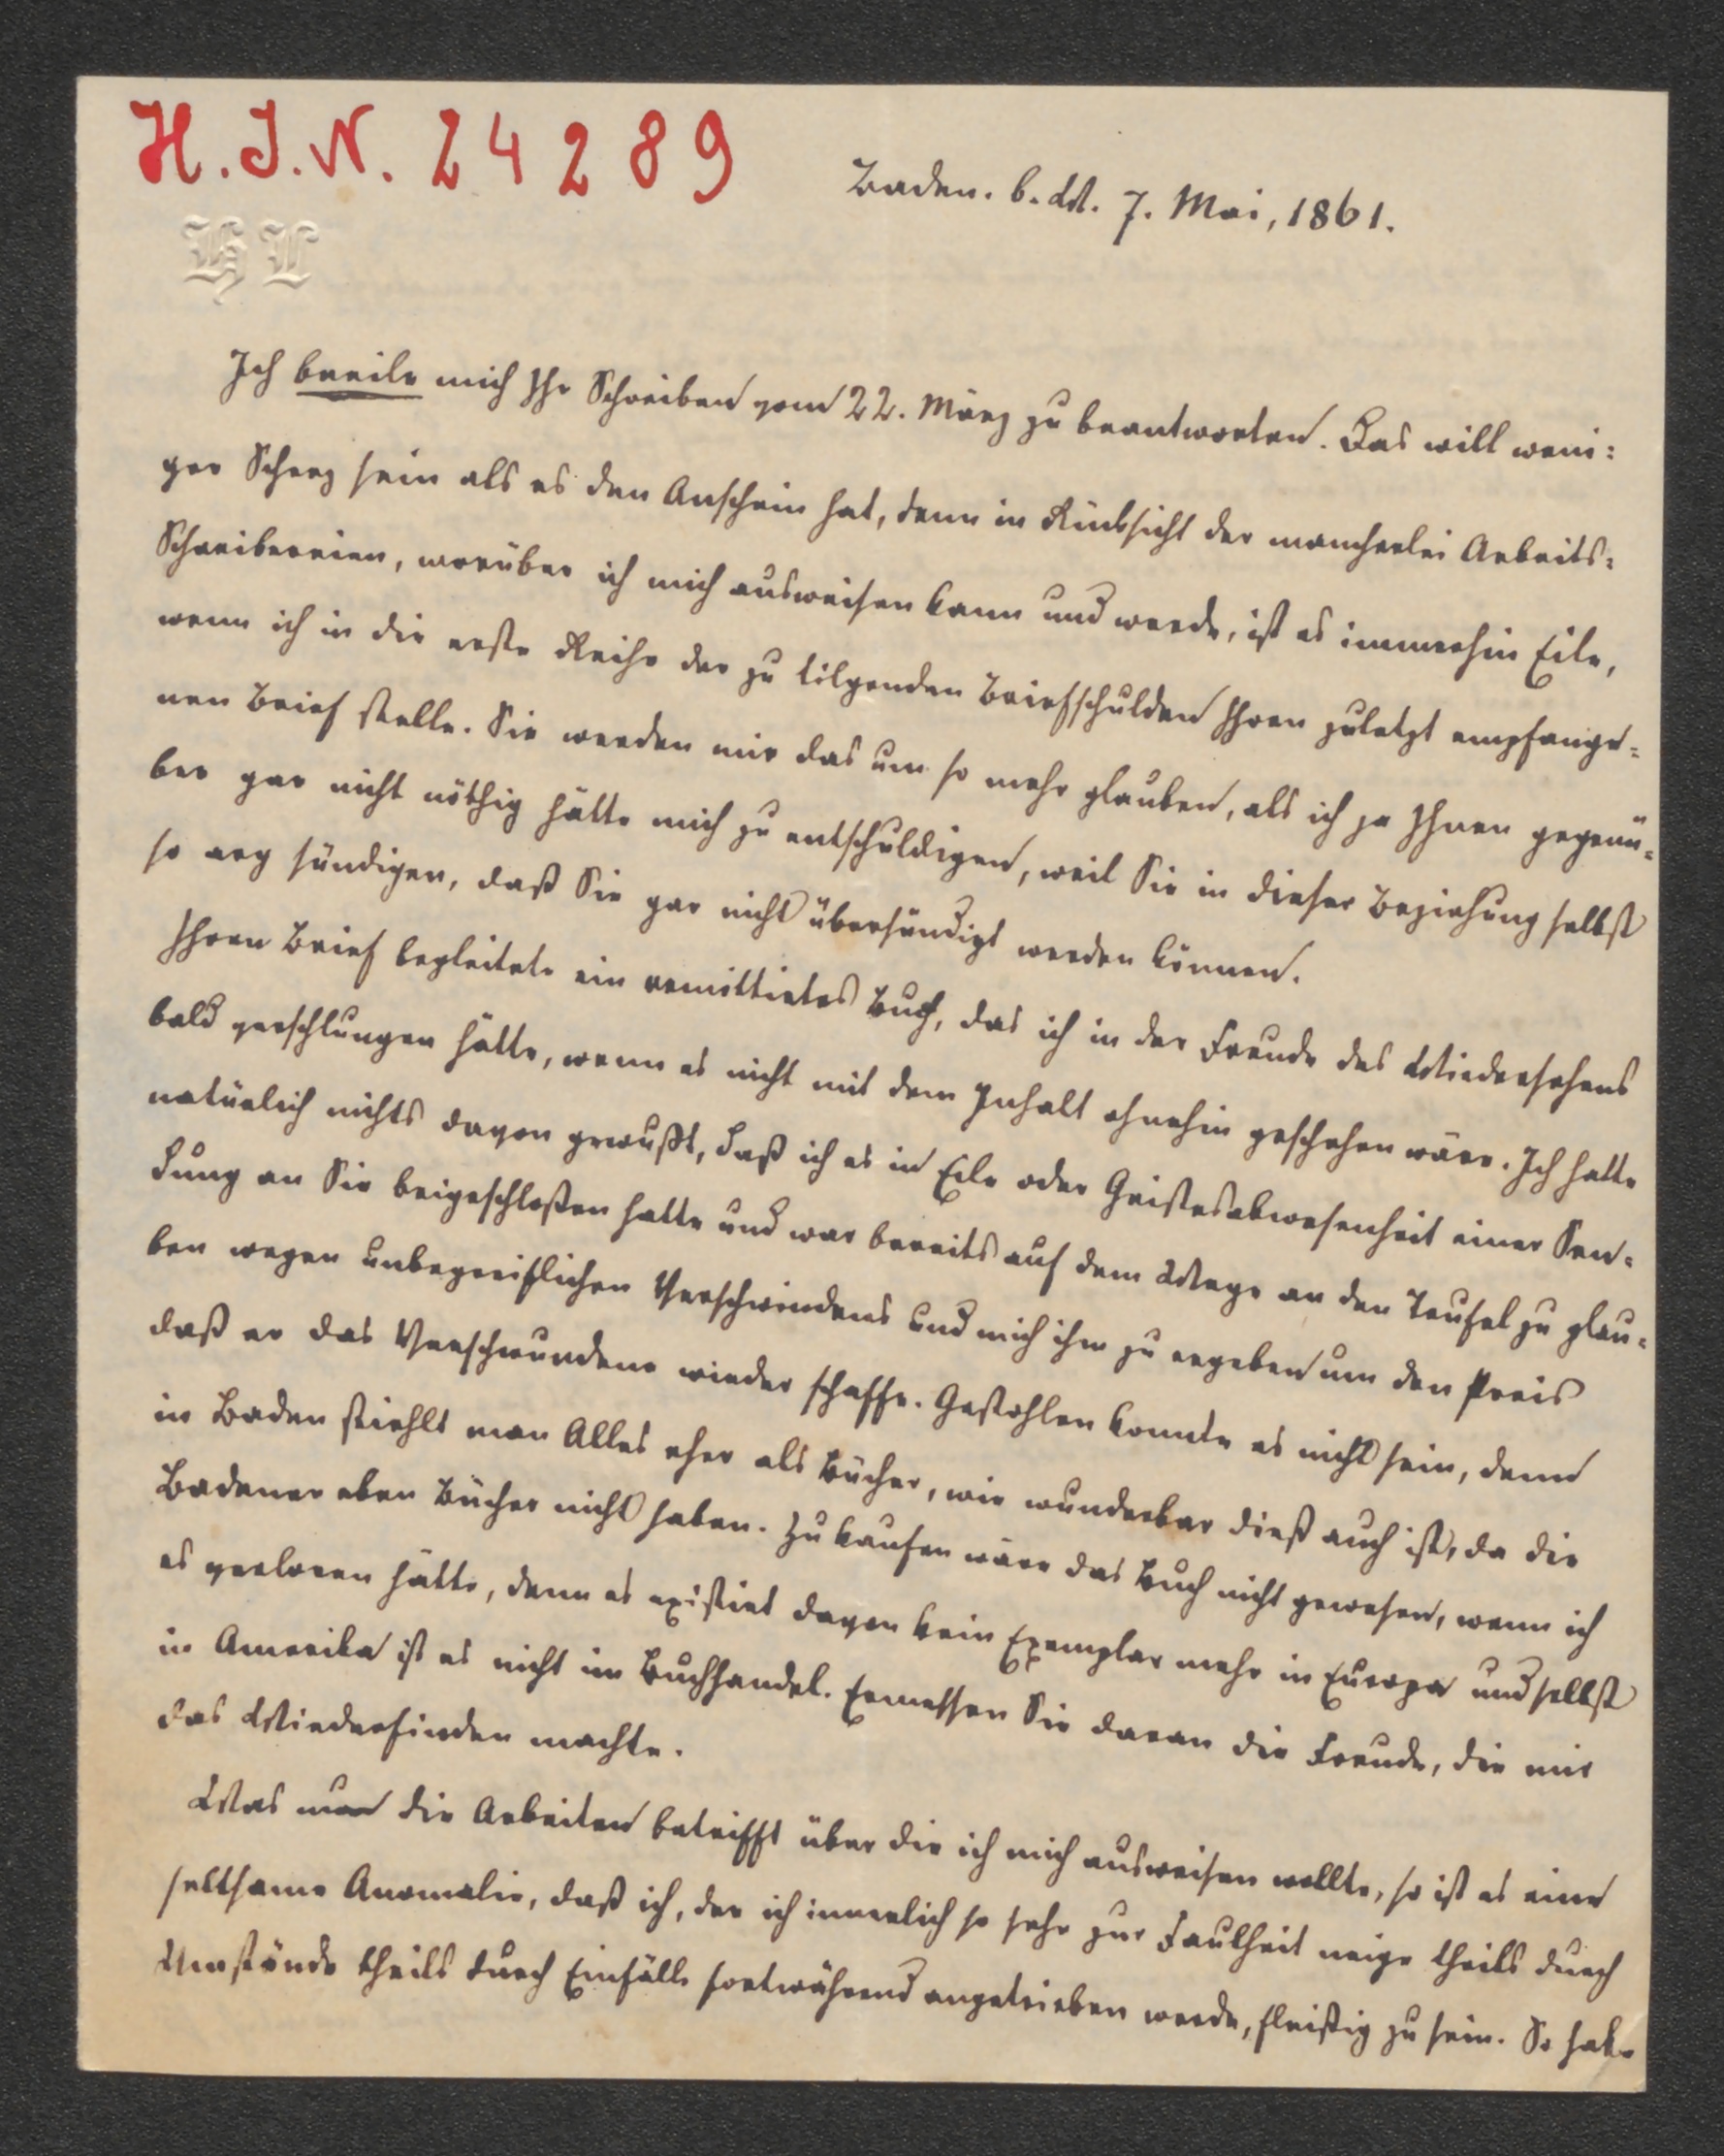 H.I.N. 24289
Baden. b. W. 7. Mai, 1861.
HL
Ich beeile mich Ihr Schreiben vom 22. März zu beantworten. Das will weni:
ger Scherz sein als es den Anschein hat, denn in Rücksicht der mancherlei Arbeits:
Schreibereien, worüber ich mich ausweisen kann und werde, ist es immerhin Eile,
wenn ich in die erste Reihe der zu tilgenden Briefschulden Ihren zuletzt empfange:
nen Brief stelle. Sie werden mir das um so mehr glauben, als ich ja Ihnen gegenü:
ber gar nicht nöthig hätte mich zu entschuldigen, weil Sie in dieser Beziehung selbst
so arg sündigen, daß Sie gar nicht übersündigt werden können.
Ihren Brief begleitete ein remittirtes Buch, das ich in der Freude des Wiedersehens
bald verschlungen hätte, wenn es nicht mit dem Inhalt ohnehin geschehen wäre. Ich hatte
natürlich nichts davon gewußt, daß ich es in Eile oder Geistesabwesenheit einer Sen:
dung an Sie beigeschloßen hatte und war bereits auf dem Wege an den Teufel zu glau:
ben wegen unbegreiflichen Verschwindens und mich ihm zu ergeben um den Preis
daß er das Verschwundene wieder schaffe. Gestohlen konnte es nicht sein, denn
in Baden stiehlt man Alles eher als Bücher, wie wunderbar dieß auch ist, da die
Badener eben Bücher nicht haben. Zu kaufen wäre das Buch nicht gewesen, wenn ich
es verloren hätte, denn es existirt davon kein Exemplar mehr in Europa und selbst
in Amerika ist es nicht im Buchhandel. Ermessen Sie daran die Freude, die mir
das Wiederfinden machte.
Was nun die Arbeiten betrifft über die ich mich ausweisen wollte, so ist es eine
seltsame Anomalie, daß ich, der ich innerlich so sehr zur Faulheit neige theils durch
Umstände theils durch Einfälle fortwährend angetrieben werde, fleißig zu sein. So habe